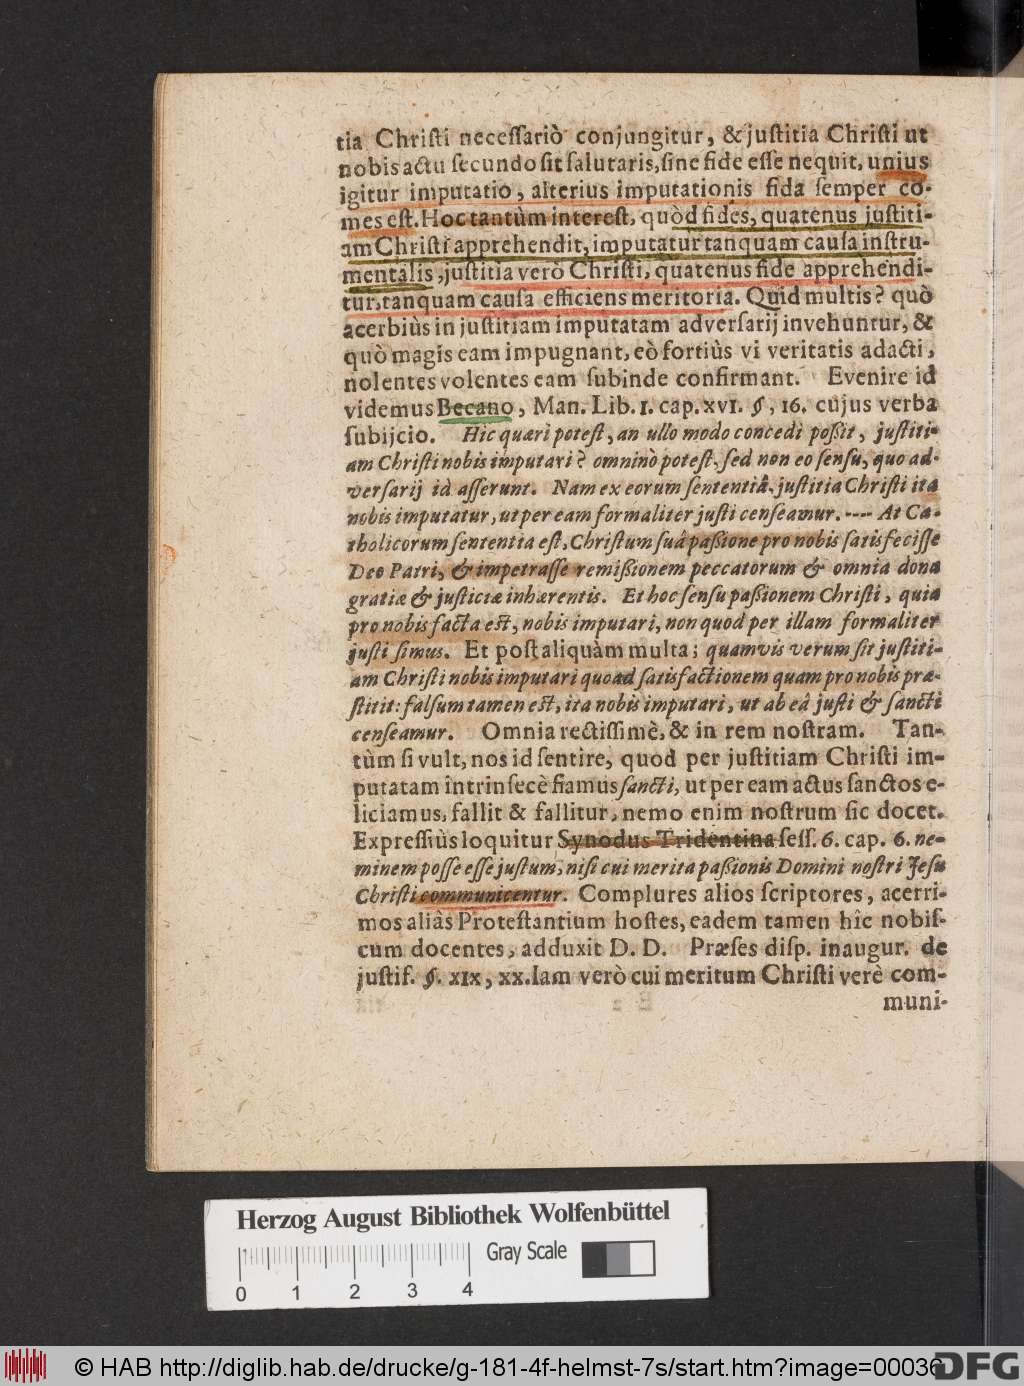 tia Chriſti neceſſariò conjungitur, & juſtitia Chriſti ut
nobis actu ſecundo ſit ſalutaris, ſine fide eſſe nequit, unius
igitur imputatio, alterius imputationis fida ſemper co-
mes eſt. Hoc tantùm intereſt, quòd fides, quatenus juſtiti-
am Chriſti apprehendit, imputatur tanquam cauſa inſtru-
mentalis, juſtitia verò Chriſti, quatenus fide apprehendi-
tur, tanquam cauſa efficiens meritoria. Quid multis? quò
acerbiùs in juſtitiam imputatam adverſarij invehuntur, &
quò magis eam impugnant, eò fortiùs vi veritatis adacti,
nolentes volentes eam ſubinde confirmant. Evenire id
videmus Becano, Man. Lib. 1. cap. xvi. §, 16. cujus verba
ſubijcio. Hic quæri poteſt, an ullo modo concedi poßit, juſtiti-
am Chriſti nobis imputari? omninò poteſt, ſed non eo ſenſu, quo ad-
verſarij id aſſerunt. Nam ex eorum ſententiâ, juſtitia Chriſti ita
nobis imputatur, ut per eam formaliter juſti cenſeamur. ---- At Ca-
tholicorum ſententia eſt, Chriſtum ſuâ paßione pro nobis ſatisfeciſſe
Deo Patri, & impetraſſe remißionem peccatorum & omnia dona
gratiæ & juſticiæ inhærentis. Et hoc ſenſu paßionem Chriſti, quia
pro nobis facta eſt, nobis imputari, non quod per illam formaliter
juſti ſimus. Et poſt aliquàm multa; quamvis verum ſit juſtiti-
am Chriſti nobis imputari quoad ſatisfactionem quam pro nobis præ-
ſtitit: falſum tamen eſt, ita nobis imputari, ut ab eâ juſti & ſancti
cenſeamur. Omnia rectiſſimè, & in rem noſtram. Tan-
tùm ſi vult, nos id ſentire, quod per juſtitiam Chriſti im-
putatam intrinſecè fiamus ſancti, ut per eam actus ſanctos e-
liciamus, fallit & fallitur, nemo enim noſtrum ſic docet.
Expreſſiùs loquitur Synodus Tridentina ſeſſ. 6. cap. 6. ne-
minem poſſe eſſe juſtum, niſi cui merita paßionis Domini noſtri Jeſu
Chriſti communicentur. Complures alios ſcriptores, acerri-
mos aliâs Proteſtantium hoſtes, eadem tamen hîc nobiſ-
cum docentes, adduxit D. D. Præſes diſp. inaugur. de
juſtif. §. xix, xx. Iam verò cui meritum Chriſti verè com-
muni-
Herzog August Bibliothek Wolfenbüttel
Gray Scale
0 1 2 3 4
© HAB http://diglib.hab.de/drucke/g-181-4f-helmst-7s/start.htm?image=00036
DFG